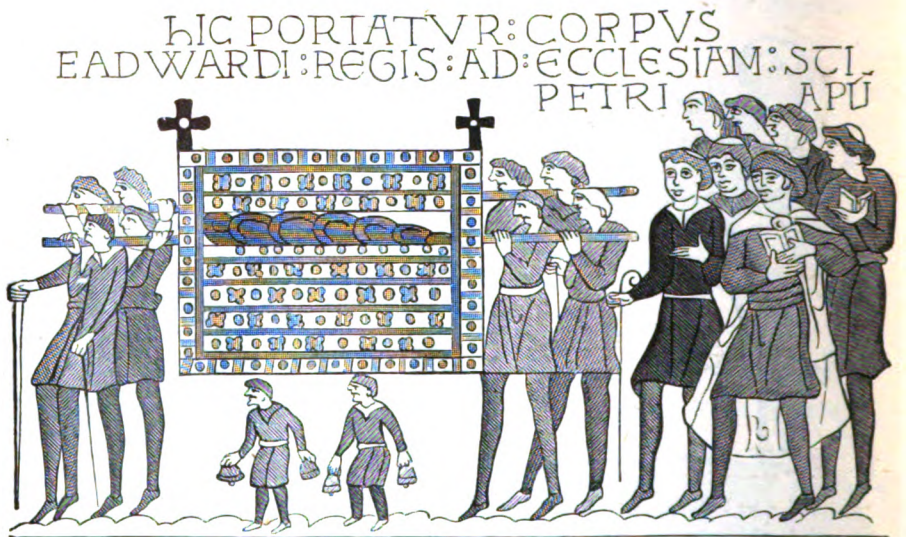 hIC PORTATVR : CORPVS
EADWARDI : REGIS : AD : ECCLESIAM : SCI
PETRI APŪ